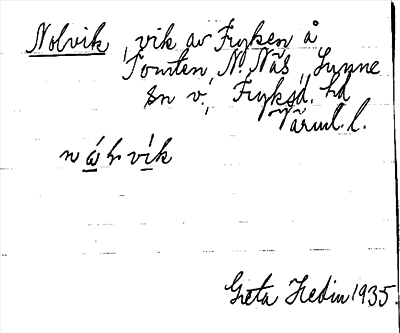 Nolvik, vik av Fryken å
Tomten N. Näs, Sunne
sn v., Fryksd. hd
Värml. l.
Greta Hedin 1935.